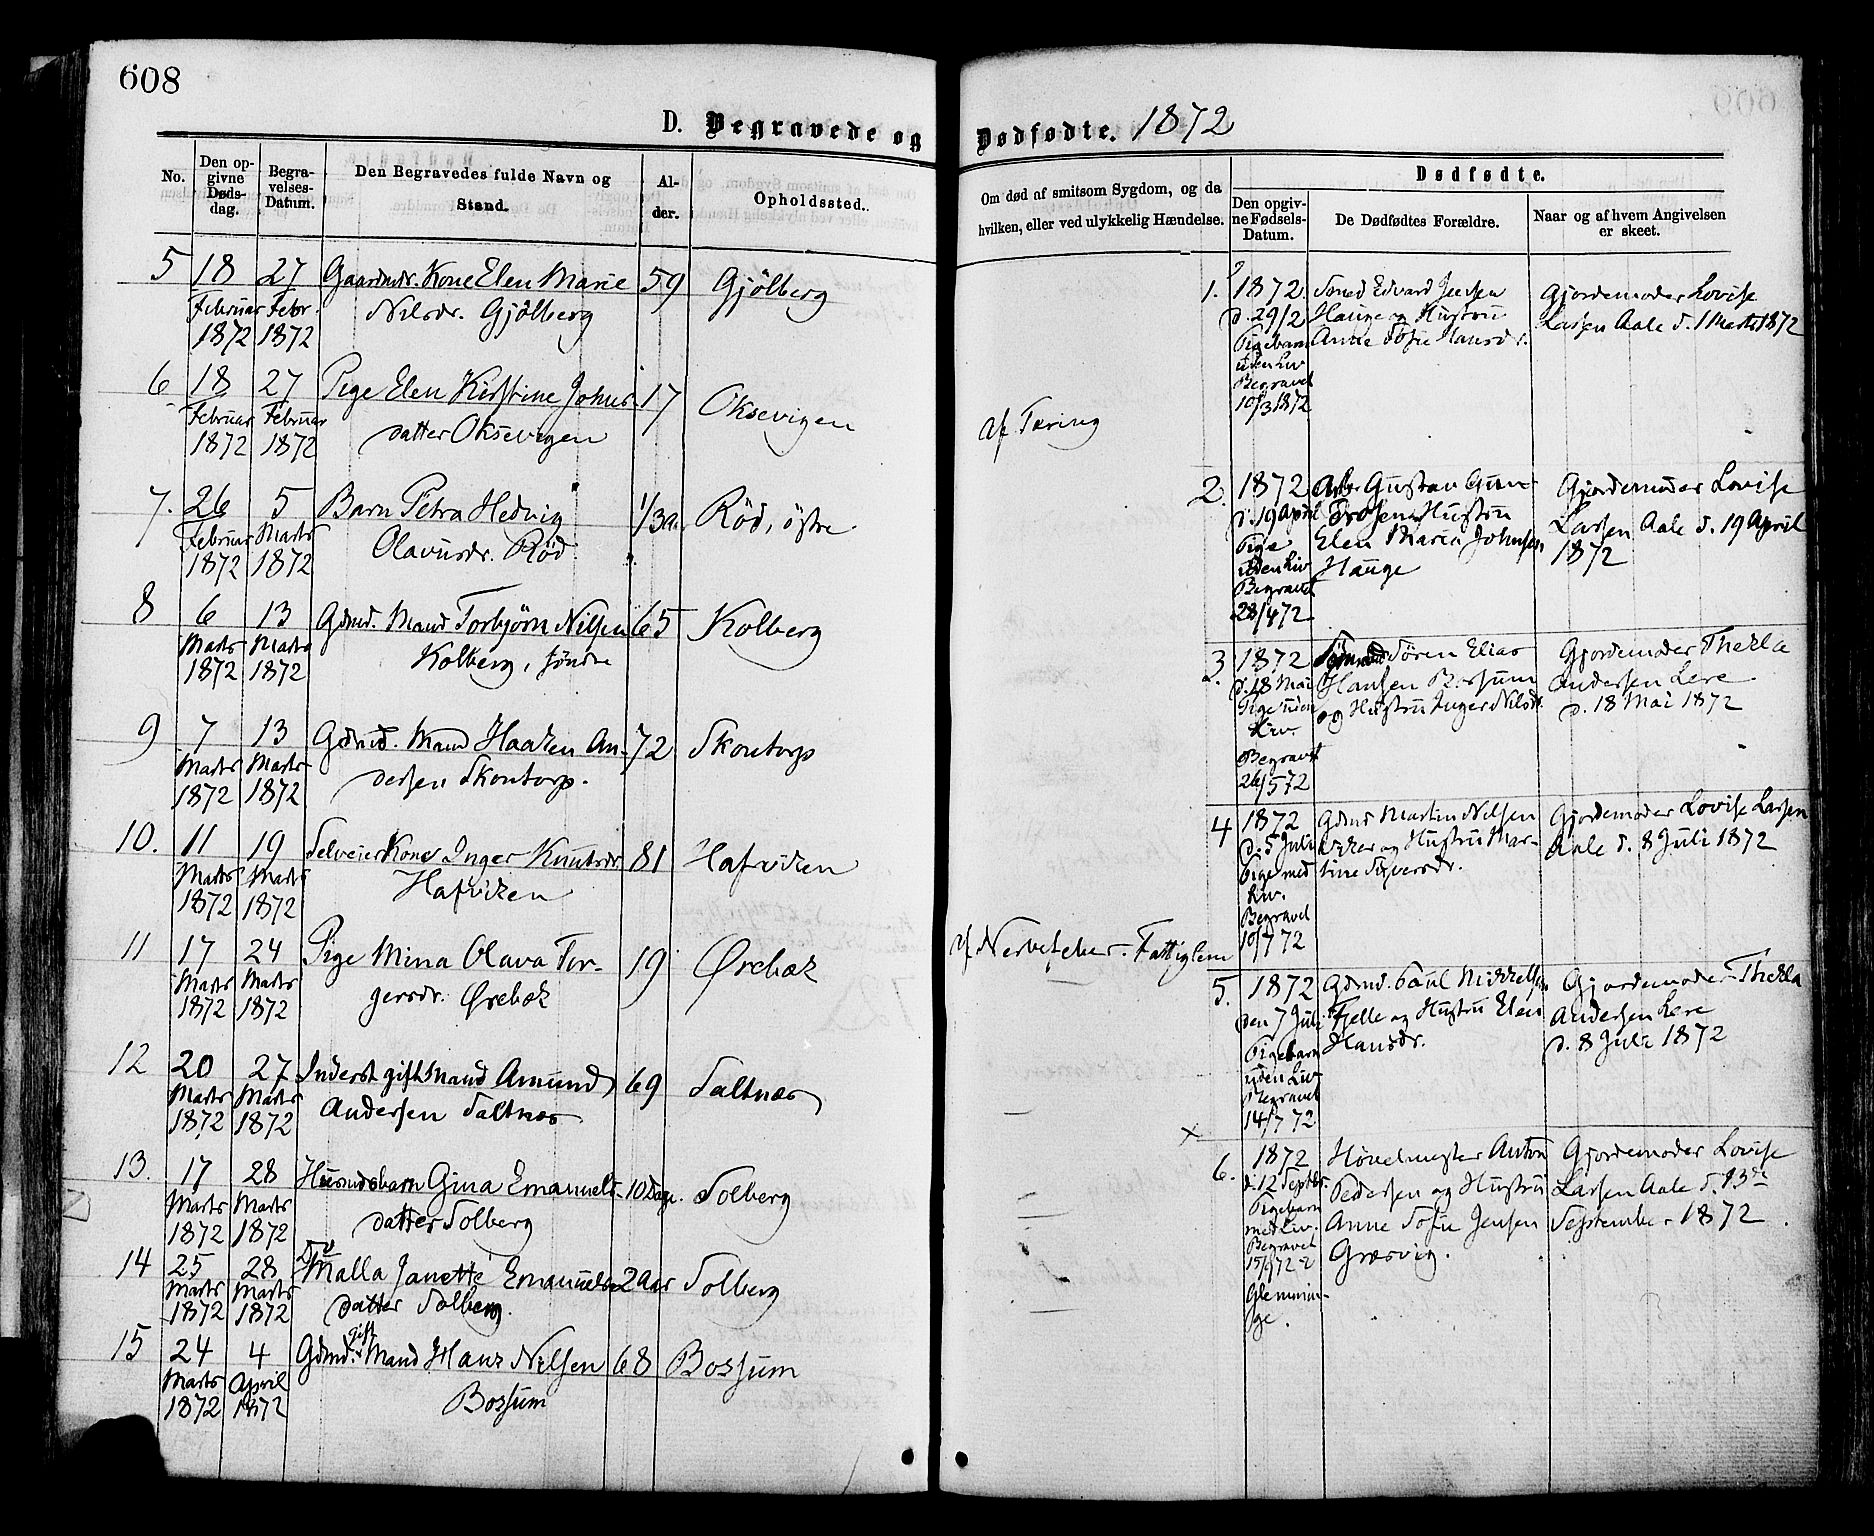 608
D. Begravede og
No.
Den op-
givne
Døds-
dag.
Begra-
velses-
Datum.
Den Begravedes fulde Navn og
Stand.
Al-
der.
Opholdssted.
5 18 27 Gaardmdr. Kone Elen Marie 59 Gjölberg
Februar Febr. Nilsdr. Gjölberg
1872 1872
6 18 27 Pige Elen Kirstine Johns- 17 Oksevigen
Februar Februar datter Oksevigen
1872 1872
7. 26 5 Barn Petra Hedvig 1/3 a. Röd, östre
Februar Marts Olavusdr. Röd
1872 1872
8 6 13 Gdmd. Mand Torbjörn Nilsen 65 Kolberg
Marts Marts Kolberg, söndre
1872 1872
9 7 13 Gdmd. Mand Haaken An- 72 Skontorp
Marts Marts dersen Skontorp.
1872 1872
10. 11 19 Selveier Kone Inger Knutsdr. 81 Hafviken
Marts Marts Hafviken
1872 1872
11 17 24 Pige Mina Olava Tor- 19 Ørebæk
Marts Marts gersdr. Ørebæk
1872 1872
12 20 27 Inderst gift Mand Amund 69 Saltnæs
Marts Marts Andersen Saltnæs
1872 1872
13. 17 28 Husmdsbarn Gina Emanuels- 10 Dage. Solberg
Marts Marts datter Solberg
1872 1872
14 25 28 Malla Janette Emanuels- 2 Aar Solberg
Marts Marts datter Solberg.
1872 1872
15 24 4 Gdmd. gift Mand Hans Nilsen 68 Bossum
Marts April Bossum
1872 1872
Dødfødte. 1872
Om død af smitsom Sygdom, og da
hvilken, eller ved ulykkelig Hændelse.
Dødfødte.
Den opgiv-
ne Fødsels-
Datum.
De Dødfødtes Forældre.
Naar og af hvem Angivelsen
er skeet.
af Tæring
af Nervefeber - Fattiglem
1. 1872 Smed Edvard Jensen Gjordemoder Lovise
d. 29/2 Hauge og Hustru Larsen Aale d. 1 Marts 1872
Pigebarn Anne Sofie Hansdr.
uden Liv
Begravet
10/3 1872
2. 1872 Arb. Gustav Gun- Gjordemoder Lovise
d. 19 April Hustru Larsen Aale d. 19 April
Pige Elen Maria Johnsen 1872
uden Liv Hauge
Begravet
28/4 72
3. 1872 Sören Elias Gjordemoder Thekla
d. 18 Mai Hansen Bossum Andersen Lere
Pige uden og Hustru Inger Nilsdr. d. 18 Mai 1872
Liv.
Begravet
26/5 72
4 1872 Gdmd Martin Nilsen Gjordemoder Lovise Larsen
d. 5 Juli Viker og Hustru Mar- Aale d. 8 Juli 1872
Pige med tine Sifversdr.
Liv.
Begravet
10/7 72
5. 1872 Gdmd. Paul Mikkelsen Gjordemoder Thekla
den 7 Juli Fjelle og Hustru Elen Andersen Lere
Pigebarn Hansdr. d. 8 Juli 1872
uden Liv
Begravet
14/7 72
x
6. 1872 Høvelmester Anton Gjordemoder Lovise
d. 12 Septbr. Pedersen og Hustru Larsen Aale d. 13de
Pigebarn Anne Sofie Jensen September 1872
med Liv. Græsvig.
Begravet
15/9 72
Glemmin-
ge.